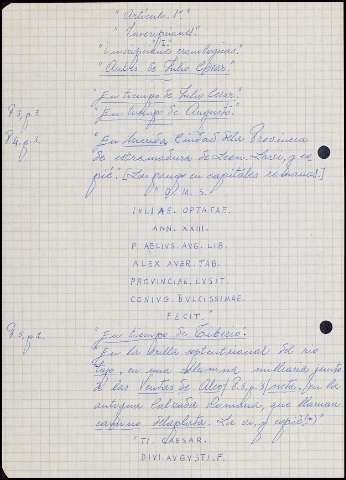 "Artículo 1º."
"Inscripciones."
"Inscripciones cronológicas."
"Antes de Julio César."
"En tiempo de Julio César."
P. 3, p. 2. "En tiempo de Augusto."
P. 4, p. 1. "En Mérida, Ciudad de la Provincia
de extremadura de Leon. Laver, y co
pié". [Las pongo en capitales romanas.]
" D. M. S.
IVLIAE. OPTATAE.
ANN. XXIII.
P. AELIVS. AVG. LIB.
ALEX AVER. TAB.
PROVINCIAE. LVSIT.
CONIVG. DVLCISSIMAE.
FECIT."
P. 5, p. 2. "En tiempo de Tiberio.
"En la orilla septentrional del rio
Tajo, en una columna miliaria junto
de las Ventas de
antigua Calzada Romana, que llaman
camino
"TI. CAESAR.
DIVI. AVGVSTI. F.